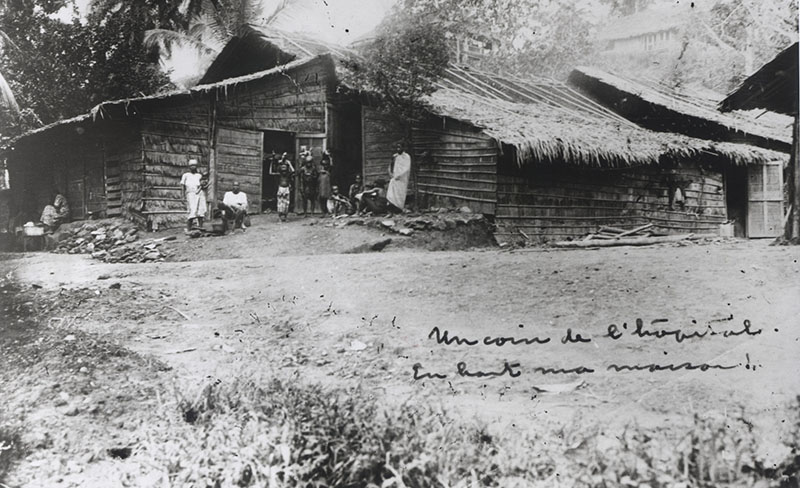 Un coin de l'hôpital.
En haut ma maison!